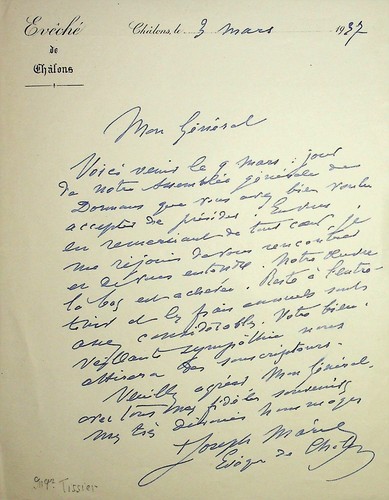 Evêché
de
Châlons
Châlons, le 3 mars 1937
Mon Général
Voici venir le 9 mars : jour
de notre Assemblée générale de
Dormans que vous avez bien voulu
accepter de présider. En vous
en remerciant de tout cœur je
me réjouis de vous rencontrer
et de vous entendre. Notre
là bas est achevée. Reste à l'entre-
tenir et les frais annuels sont
assez considérables. Votre bien-
veillante sympathie nous
attirera des souscripteurs.
Veuillez agréer Mon Général
avec tous mes fidèles souvenirs
mes très hommages
† Joseph Marie
Evêque de Châlons
Mgr Tissier